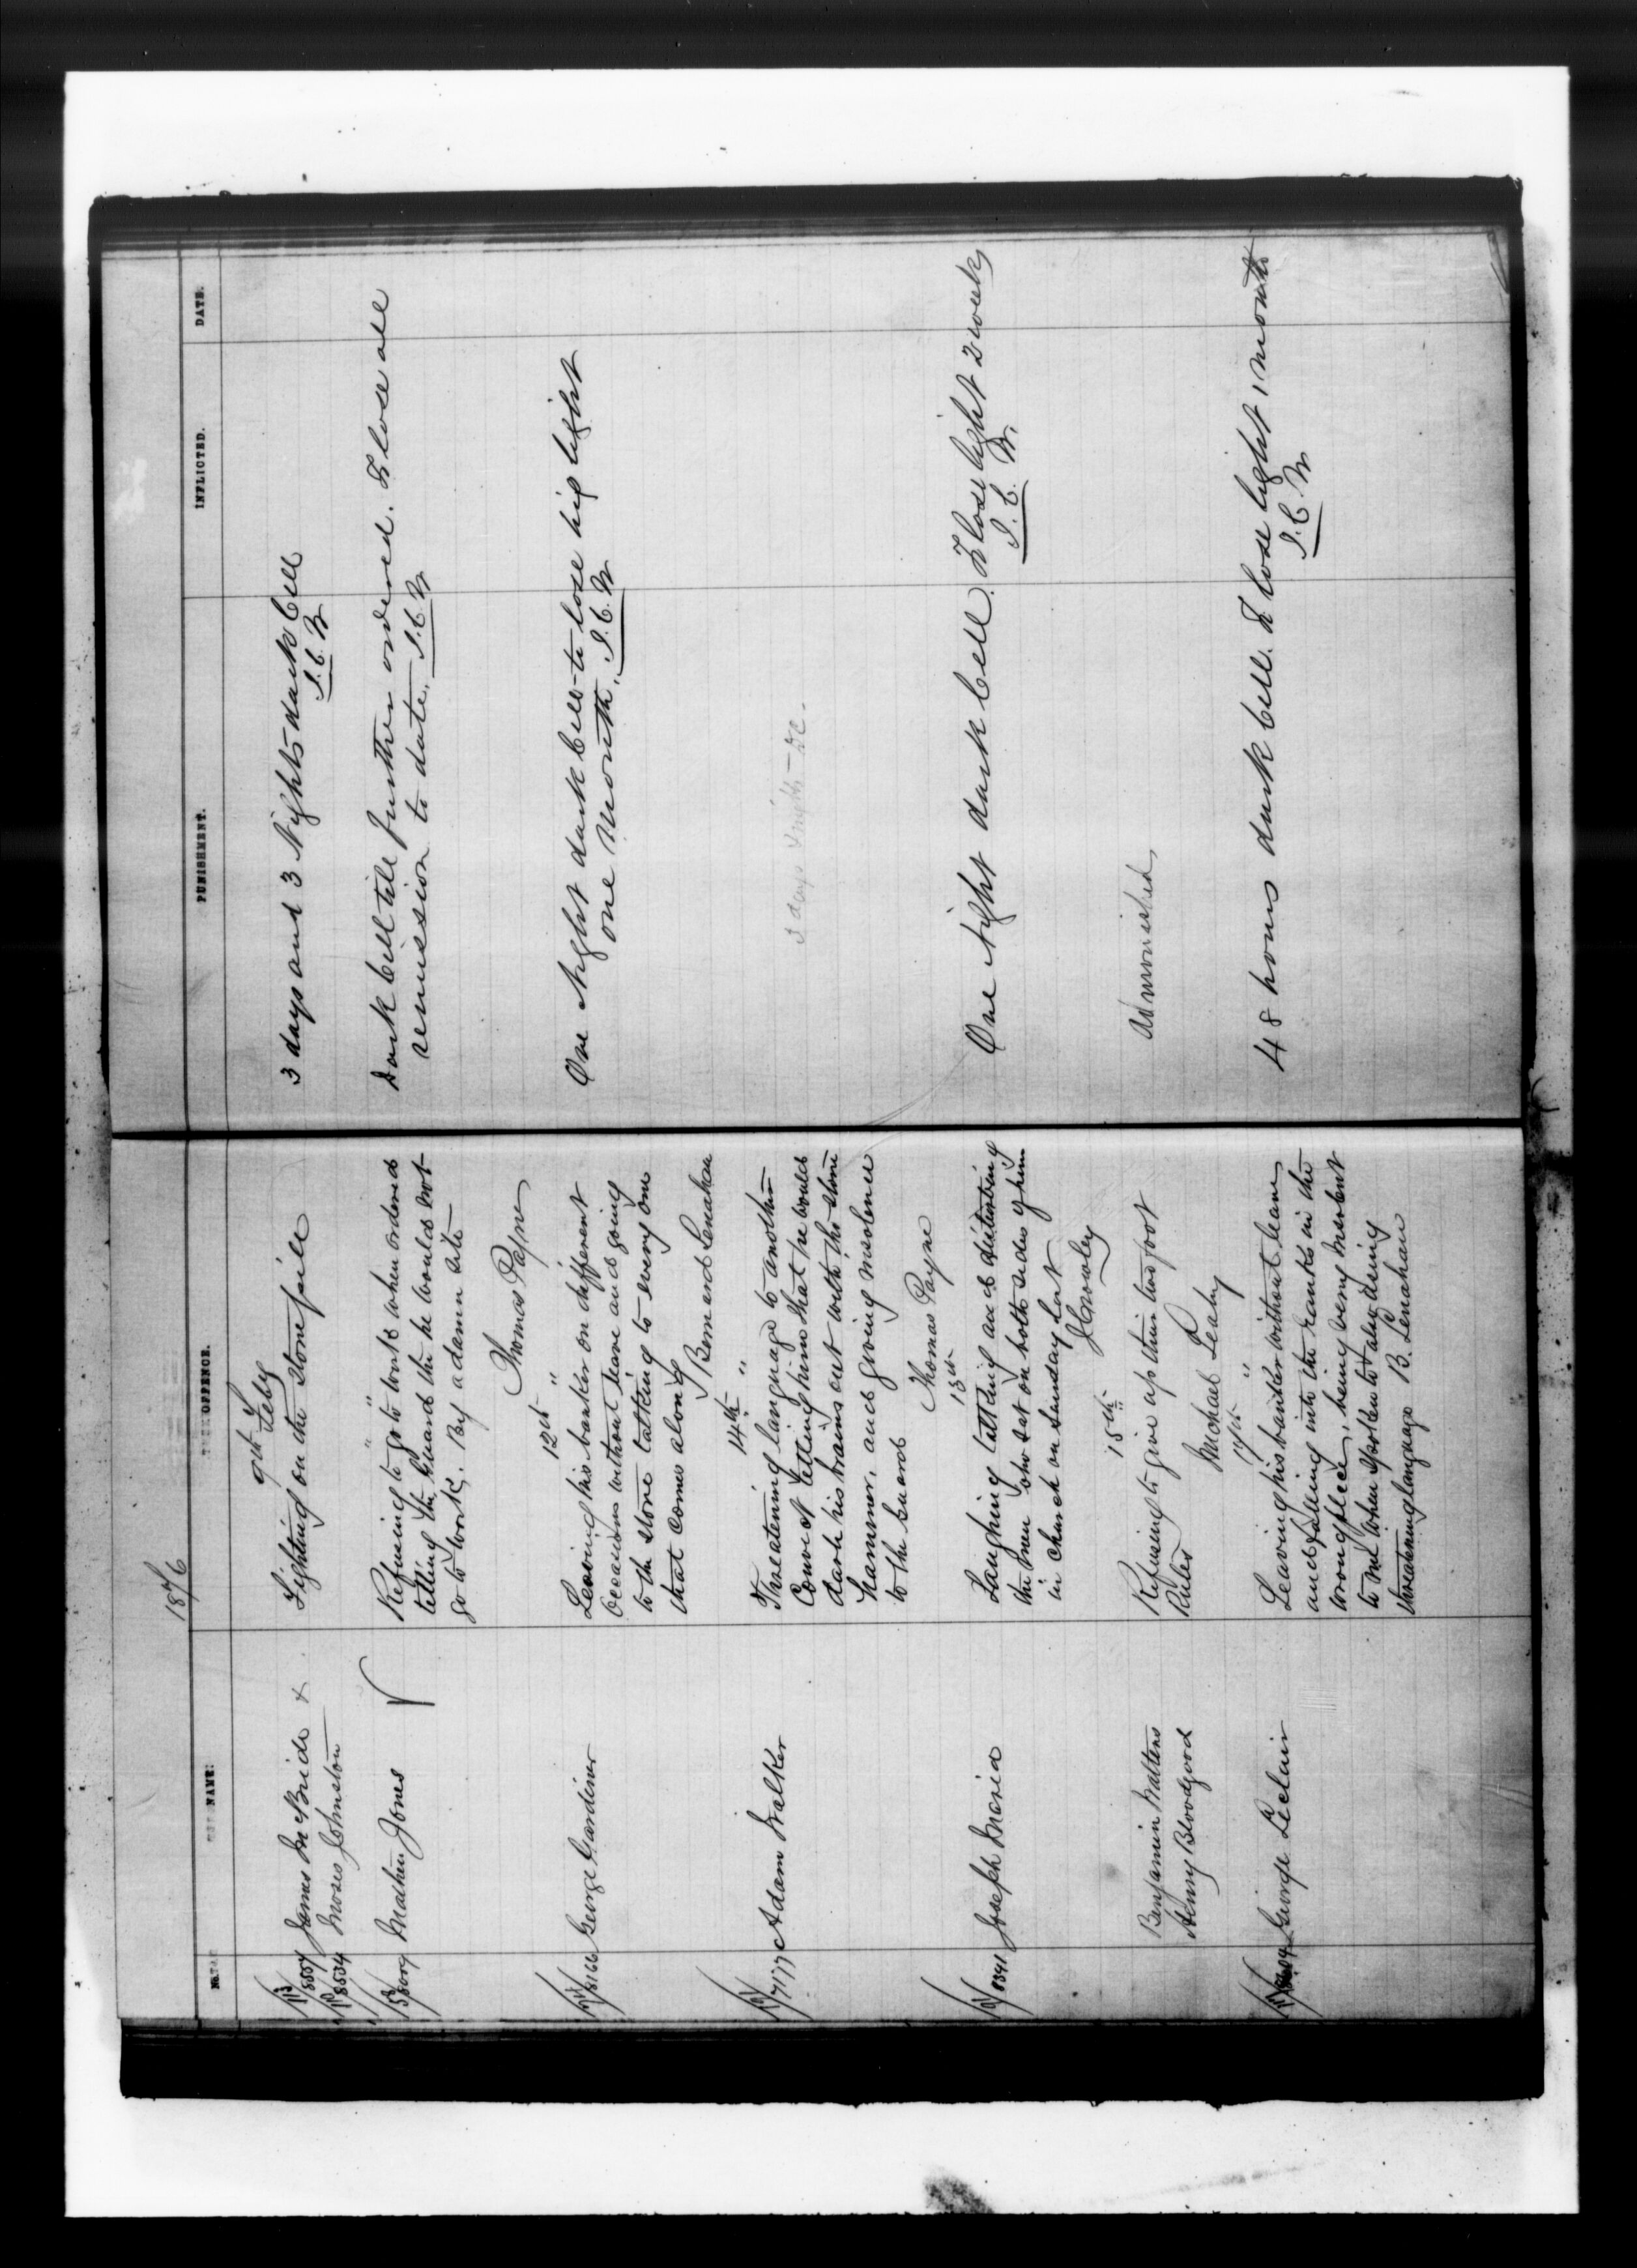 1876
No. NAME. OFFENCE. PUNISHMENT. INFLICTED. DATE.
9th Feby
8557 James McBride &
8534 Moses Johnston
Fighting on the Stone pile
3 days and 3 Nights dark Cell
J. C. M
"
Mathew Jones
Refusing to go to work when ordered
telling the Guard the he would not
go to work. By a damn site
Thomas Payne
Dark Cell till further ordered. To lose all
remission to date. J. C. M
12th "
8166 George Gardiner
Leaving his banker on different
occasions without leave and going
to the stove talking to every one
that comes along
Bernard Lenahan
One Night dark Cell - to lose his light
one Month. J. C. M
14th "
7177 Adam Walker
Threatening language to another
Convict telling him that he would
dash his brains out with the stone
hammer, and giving insolence
to the Guard
Thomas Payne
3 days & nights - DC.
15th
8341 Joseph
Laughing talking and disturbing
the men who sat on both sides of him
in Church on Sunday last
J Crowley
One Night dark Cell. To lose light 2 weeks
J. C. M.
15th "
Benjamin Walters
Henry Bloodgood
Refusing to give up their two foot
Rules
Michael Leahy
Admonished
17th "
George Leclair
Leaving his banker without leave
and falling into the ranks in the
wrong place, being very insolent
to me when spoken to also using
threatening language B. Lenahan
48 hours dark Cell. To lose light 1 month
J. C. M